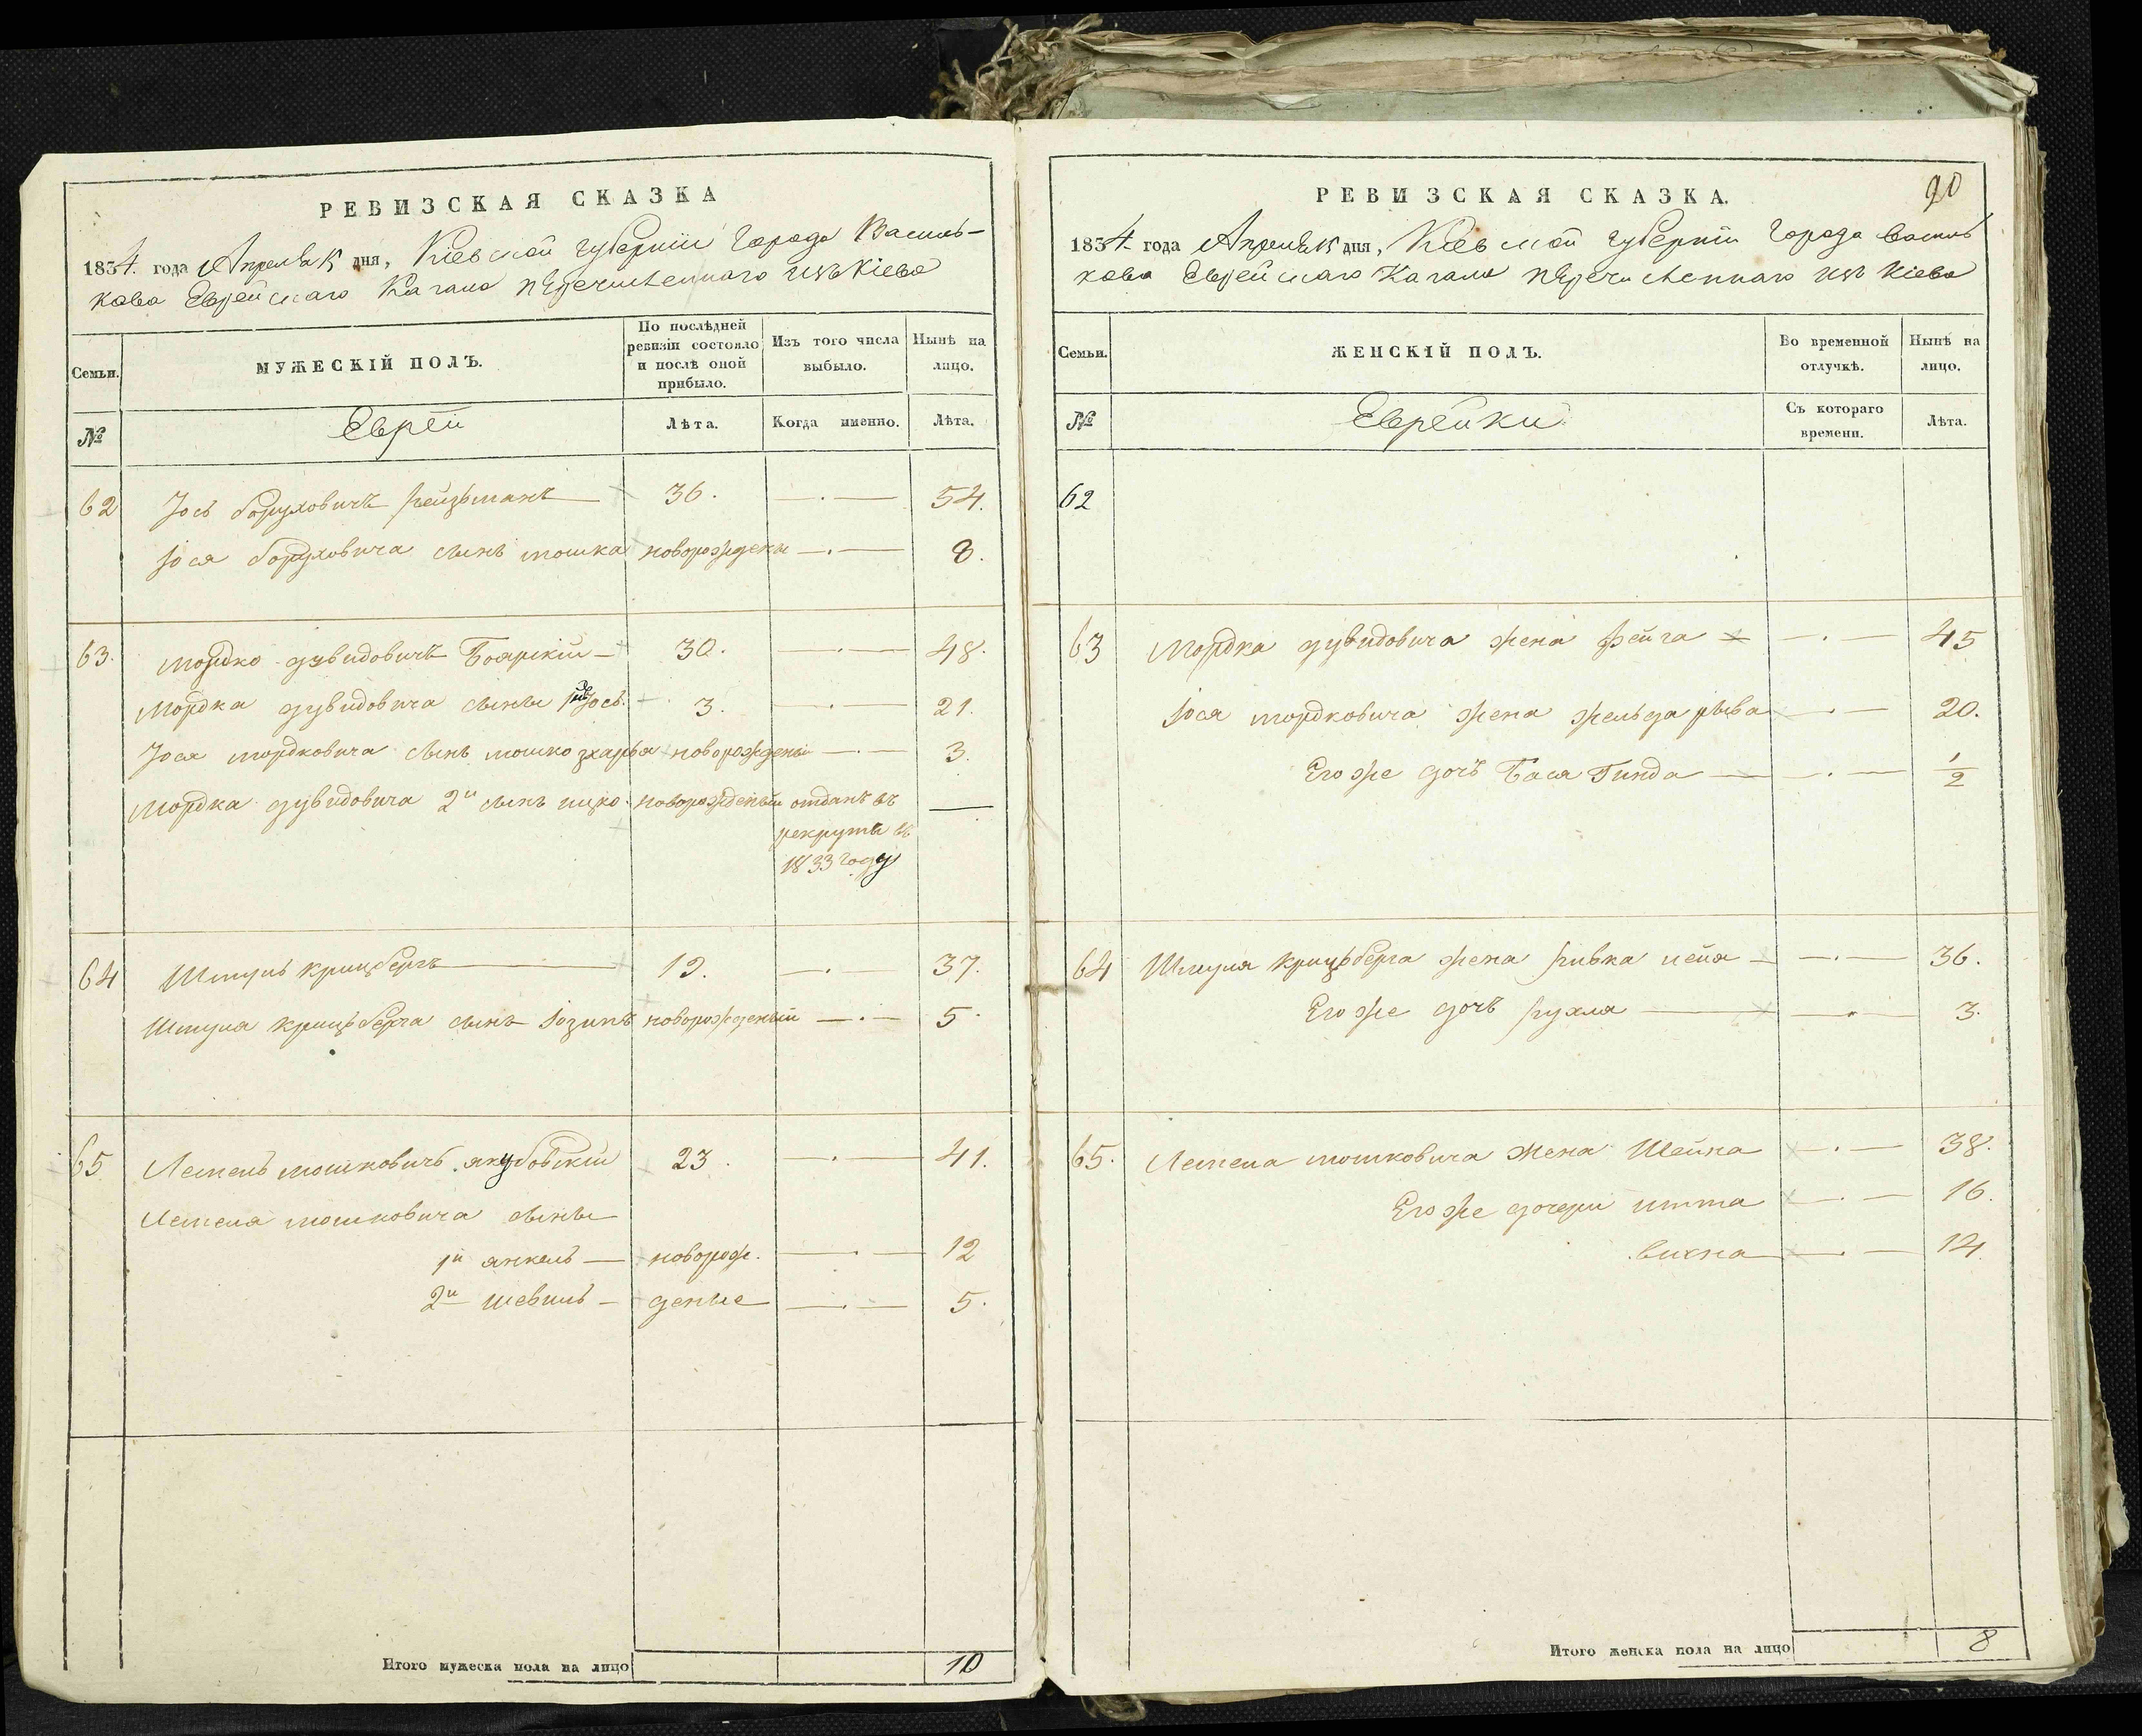 РЕВИЗСКАЯ СКАЗКА
1834. года Апреля 15 дня, Кіевской губерніи Города Василь-
кова Еврейскаго Кагала перечисленнаго изъ Кіева
Семьи.
МУЖЕСКІЙ ПОЛЪ.
По послѣдней ревизіи состояло и послѣ оной прибыло.
Изъ того числа выбыло.
Нынѣ на лицо.
№
Еврей
Лѣта.
Когда именно.
Лѣта.
62 Іось Боруховичъ Рейзьманъ 36. 54.
Іося Боруховича сынъ Мошка новорожденъ 8.
63. Мордко Дувидовичъ Боярскій 30. 48.
Мордка Дувидовича сыны 1й Іось. 3. 21.
Іося Мордковича сынъ Мошко Зхарья новорожденый 3.
Мордка Дувидовича 2й сынъ Ицко новорожденый отданъ въ
рекруты въ
1833 году
64 Шмуль Крицбергъ 19. 37.
Шмуля Крицьберга сынъ Іозипъ новорожденый 5.
65 Лемель Мошковичъ Якубовскій 23. 41.
Лемеля Мошковича сыны
1й Янкель новорож. 12
2й Шевель деные 5.
Итого мужеска пола на лицо 10
90
РЕВИЗСКАЯ СКАЗКА.
1834 года Апреля 15 дня, Кіевской губерніи Города Василь
кова Еврейскаго Кагала перечисленнаго изъ Кіева
Семьи.
ЖЕНСКІЙ ПОЛЪ.
Во временной отлучкѣ.
Нынѣ на лицо.
№
Еврейки
Съ котораго времени.
Лѣта.
62
63 Мордка Дувидовича жена Фейга 45
Іося Мордковича жена Жельда Рыва 20.
Его же дочь Бася Гинда 1/2
64 Шмуля Крицьберга жена Ривка Нейа 36.
Его же дочь Рухля 3.
65. Лемела Мошковича жена Шейна 38.
Его же дочери Итта 16.
12
Итого женска пола на лицо 8